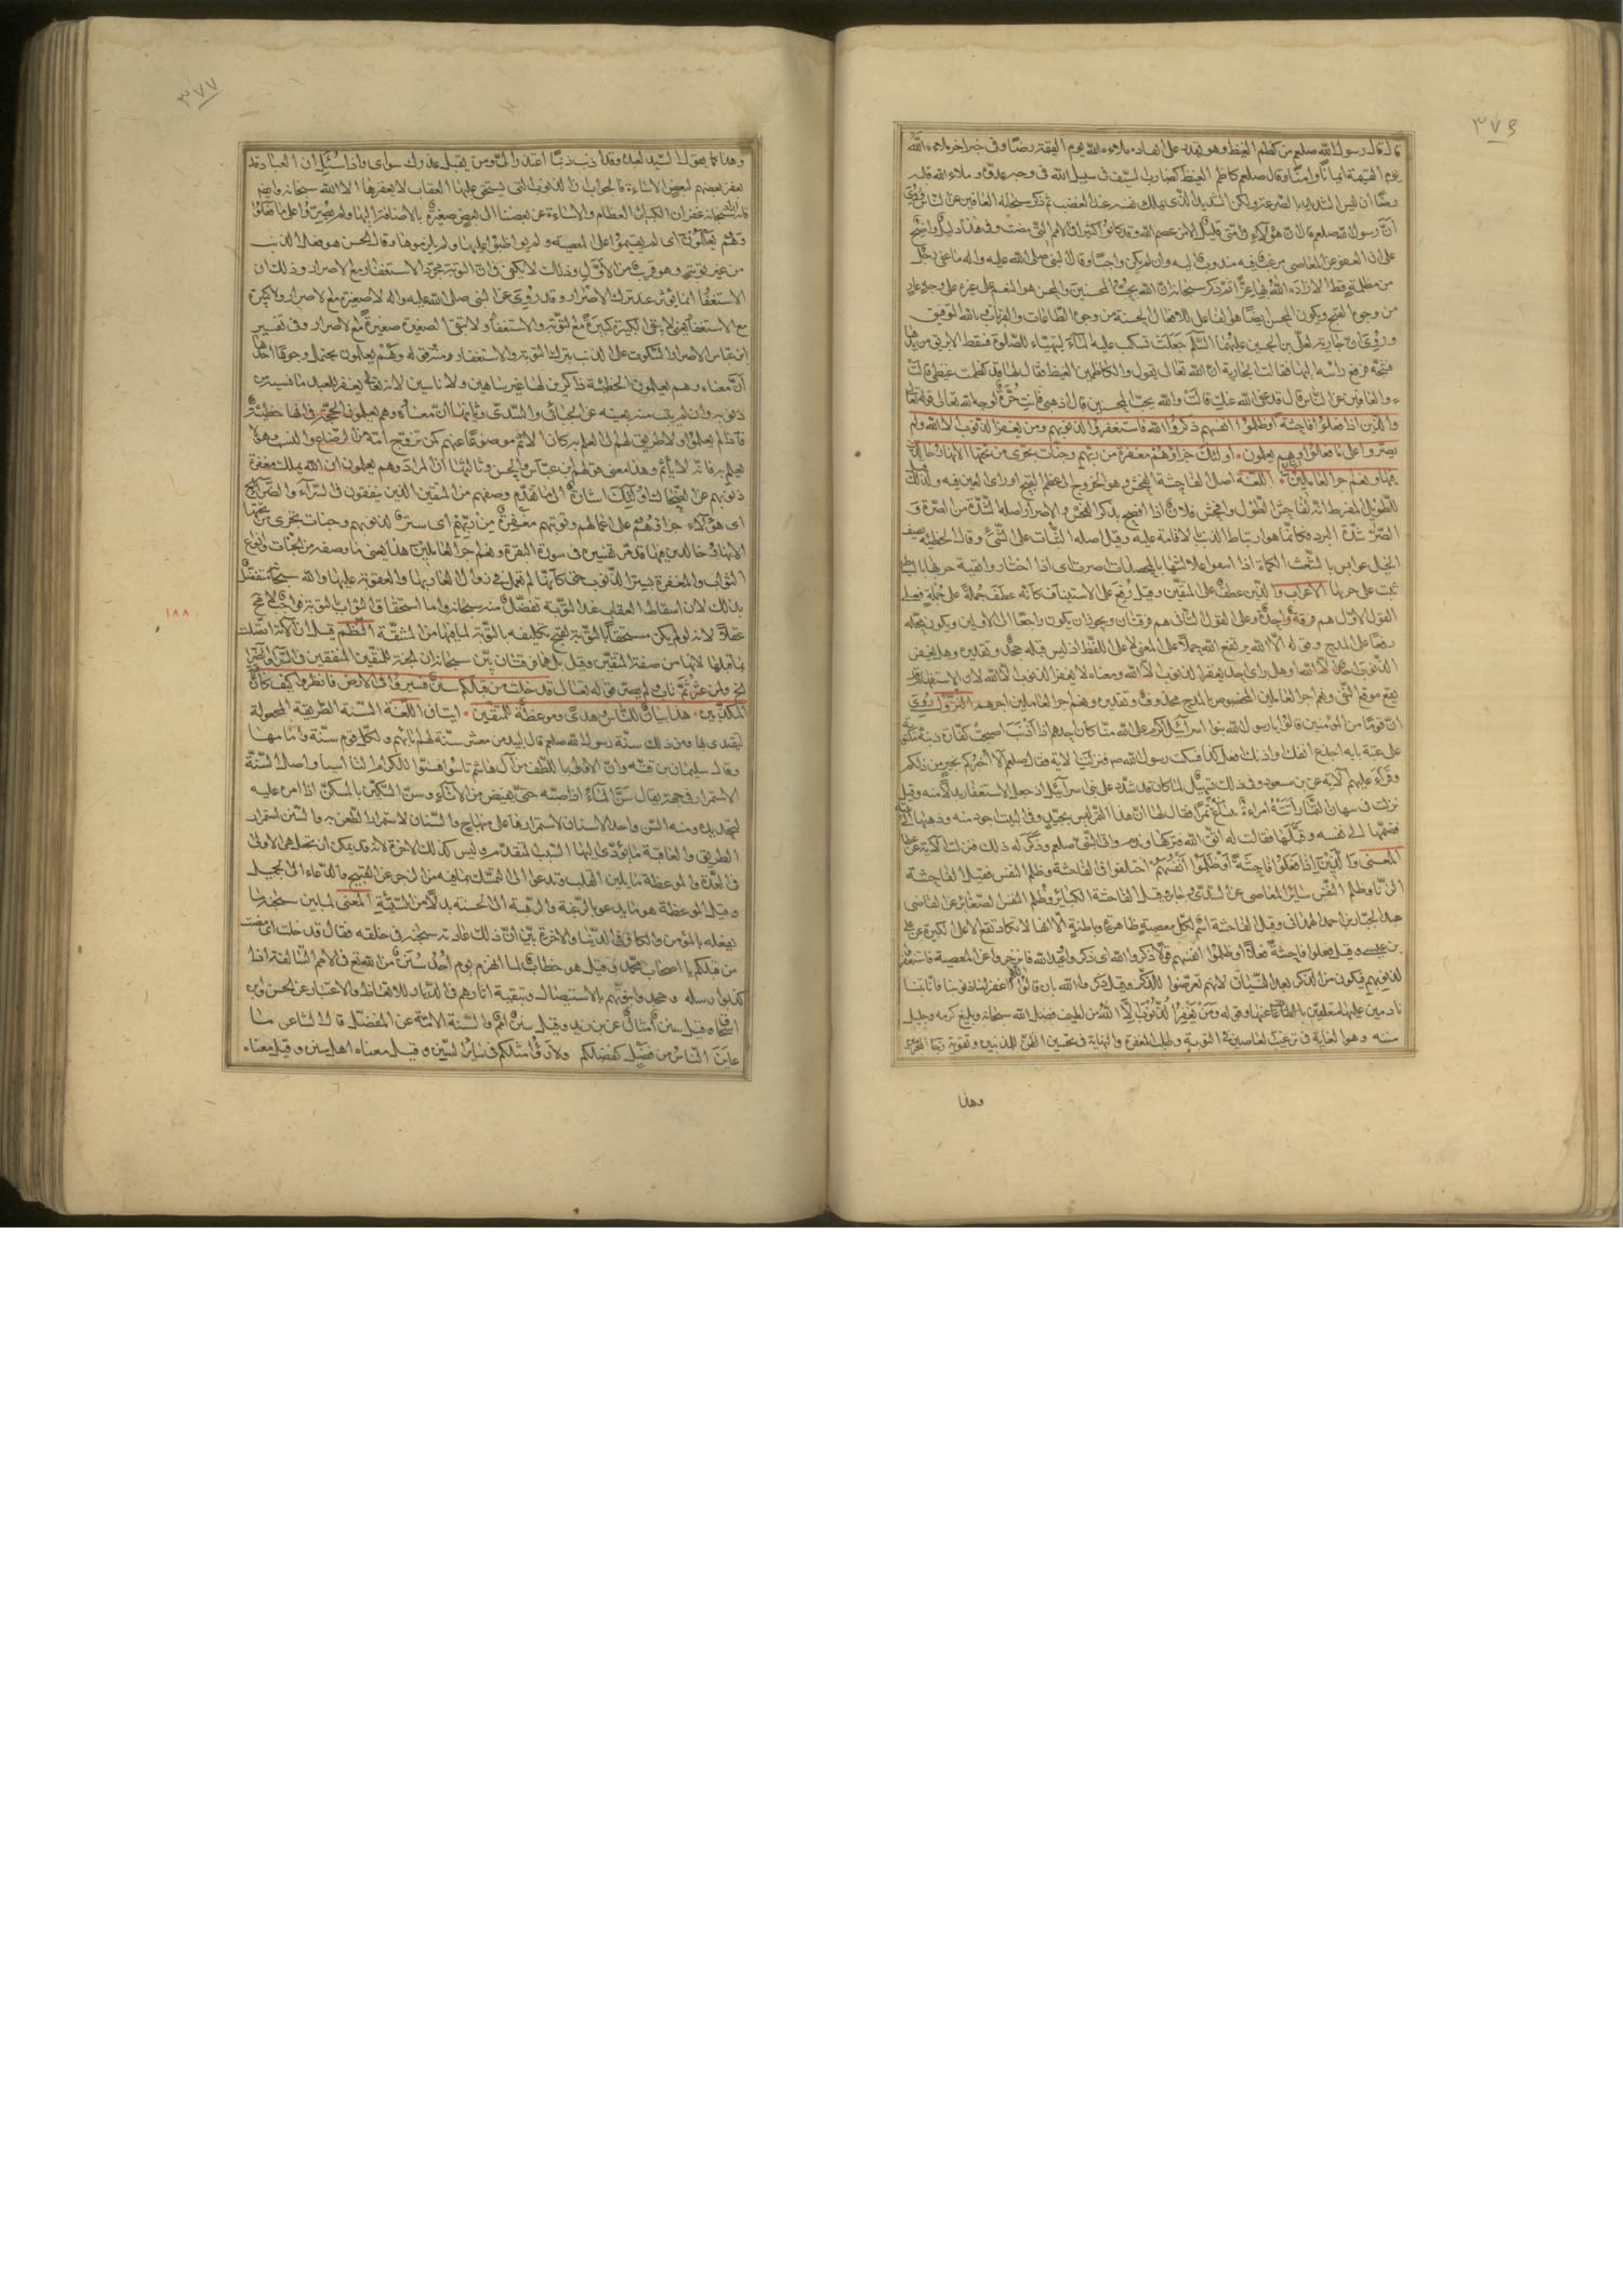 ٣٧٦
قال قال رسول الله صلعم من كظم الغيظ وهو يقدر على انفاده ملاءه الله يوم القيمة رضا وفى خبر اخر ملاءه الله
يوم القيمة ايمانا وامنا وقال صلعم كاظم الغيظ كضارب السيف فى سبيل الله فى وجه عدوه وملاء الله قلبه
رضا ان ليس الشديد بالصرعة ولكن الشديد الذى يملك نفسه عند الغضب ثم ذكر سبحانه العافين عن الناس وروى
أن رسول الله صلعم قال ان هؤلاء فى امتى قليل الا من عصم الله وقد كانوا كثيرا فى الامم التى مضت وفى هذا دليل واضح
على ان العفو عن المعاصى مرغب فيه مندوب اليه وان لم يكن واجبا وقال النبى صلى الله عليه واله ما عفى رجل
من مظلمة قط الا زاده الله بها عزا ثم ذكر سبحانه ان الله يحب المحسنين والمحسن هو المنعم على غيره على وجه عار
من وجوه القبح ويكون المحسن ايضا هو الفاعل للافعال الحسنة من وجوه الطاعات والقربات بالله التوفيق
وروى ان جارية لعلى بن الحسين عليهما السلم جعلت تسكب عليه الماء ليتهياء للصلوة فسقط الابريق من يدها
فشجه فرفع رأسه اليها فقالت الجارية ان الله تعالى يقول والكاظمين الغيظ فقال لها قد كظمت غيظى قالت
والعافين عن الناس قال قد عفى الله عنك قالت والله يحب المحسنين قال اذهبى فانت حرة لوجه الله تعالى قوله تعالى
والذين اذا فعلوا فاحشة او ظلموا انفسهم ذكروا الله فاستغفروا لذنوبهم ومن يغفر الذنوب الا الله ولم
يصروا على ما فعلوا وهم يعلمون • اولئك جزاؤهم مغفرة من ربهم وجنات تجرى من تحتها الانهار خالدين
فيها ونعم اجر العاملين • اللغة اصل الفاحشة الفحش وهو الخروج الى عظم القبح او راى العين فيه ولذلك
للطويل المفرط انه لفاحش الطول وافحش فلان اذا افصح بذكر الفحش والاصرار اصله الشدة من الصرة و
الصر شدة البرد فكانما هو ارتباط الذنب بالاقامة عليه وقيل اصله الثبات على الشئ وقال الحطيئة يصف
الخيل عوابس بالشعث الكماة اذا ابتغوا علالتها بالمحصدات اصرت اى اذا اختاروا بقية جريها بالسياط
ثبت على جريها الاعراب والذين عطف على المتقين وقيل رفع على الاستيناف كانه عطف جملة على جملة فعلى
القول الاول هم فرقة واحدة وعلى القول الثانى هم فرقتان ويجوز ان يكون راجعا الى الاولين ويكون محله
رفعا على المدح وقوله الا الله يرتفع الله حملا على المعنى لا على اللفظ اذ ليس قبله جحد وتقديره وهل يغفر
الذنوب احد الا الله او هل راى احد يغفر الذنوب الا الله ومعناه لا يغفر الذنوب الا الله لان الاستفهام قد
يقع موقع النفى ونعم اجر العاملين المخصوص بالمدح محذوف وتقديره ونعم اجر العاملين اجرهم النزول روى
ان قوما من المؤمنين قالوا يا رسول الله بنوا اسرآئيل اكرم على الله منا كان احدهم اذا اذنب اصبحت كفارة ذنبه مكتوبة
على عتبة بابه اجدع انفك او اذنك افعل كذا فسكت رسول الله ص فنزلت الاية فقال صلعم الا اخبركم بخير من ذلكم
وقرأ عليهم الآية عن ابن مسعود وفى ذلك تسهيل لما كان قد شدد على بنى اسرآئيل اذ جعل الاستغفار بدلا منه وقيل
نزلت فى نبهان التمار اتته امراءة تبتاع تمرا فقال لها ان هذا التمر ليس بجيد وفى البيت اجود منه وذهب بها الى بيته
فضمها الى نفسه وقبلها فقالت له اتق الله فتركها وندم واتى النبى صلعم وذكر له ذلك فنزلت الآية عن عطا
المعنى والذين اذا فعلوا فاحشة او ظلموا انفسهم اختلفوا فى الفاحشة وظلم النفس فقيل الفاحشة
الزنا وظلم النفس سائر المعاصى عن السدى وجابر وقيل الفاحشة الكبائر وظلم النفس الصغائر عن القاضى
عبد الجبار بن احمد الهمدانى وقيل الفاحشة اسم لكل معصية ظاهرة وباطنة الا انها لا تكاد تقع الا على الكبيرة عن على
بن عيسى وقيل فعلوا فاحشة فعلا او ظلموا انفسهم قولا ذكروا الله اى ذكروا وعيد الله فانزجروا عن المعصية فاستغفروا
لذنوبهم فيكون من الذكر بعد النسيان لانهم تعرضوا للذكر وقيل ذكروا الله بان قالوا اللهم اغفر لنا ذنوبنا فانا تبنا
نادمين عليها مقلعين عنها وقوله ومن يغفر الذنوب الا الله من لطيف فضل الله سبحانه وبليغ كرمه وجليل
منه وهو الغاية فى ترغيب العاصين فى التوبة وطلب المغفرة والنهاية فى تحسين الظن للمذنبين وتقوية رجاء المجرمين
وهذا
٣٧٧
وهذا كما يقول السيد لعبده وقد اذنب ذنبا اعتذر الى ومن يقبل عذرك سواى واذا سئل ان العباد قد
يغفر بعضهم لبعض الاساءة فالجواب ان الذنوب التى يستحق عليها العقاب لا يغفرها الا الله سبحانه وايضا
فانه سبحانه غفران الكبائر العظام والاساءة عن بعضنا الى بعض صغيرة بالاضافة اليها ولم يصروا على ما فعلوا
وهم يعلمون اى لم يقيموا على المعصية ولم يواظبوا عليها ولم يلزموها وقال الحسن هو فعل الذنب
من غير توبة وهو قريب من الاول وذلك لا يكون فان التوبة مجرد الاستغفار مع الاصرار وذلك ان
الاستغفار انما يؤثر عند ترك الاصرار وقد روى عن النبى صلى الله عليه واله لا صغيرة مع الاصرار ولا كبيرة
مع الاستغفار يعنى لا يبقى الكبيرة كبيرة مع التوبة والاستغفار ولا تبقى الصغيرة صغيرة مع الاصرار وفى تفسير
ابن عباس الاصرار السكوت على الذنب بترك التوبة والاستغفار منه وقوله وهم يعلمون يحتمل وجوها احدها
ان معناه وهم يعلمون الخطيئة ذاكرين لها غير ساهين ولا ناسين لانه تعالى يغفر للعبد ما نسيه من
ذنوبه وان لم يتب منه بعينه عن الجبائى والسدى وثانيها ان معناه وهم يعلمون الحجة فى انها خطيئة
فاذا لم يعلموا ولا طريق لهم الى العلم به كان الاثم موضوعا عنهم كمن تزوج امه من الرضاع او النسب وهو لا
يعلم به فانه لا يأثم وهذا معنى قول ابن عباس والحسن وثالثها ان المراد وهم يعلمون ان الله يملك مغفرة
ذنوبهم عن الضحاك اولئك اشارة الى ما تقدم وصفهم من المتقين الذين ينفقون فى السرآء والضرآء الخ
اى هؤلآء جزاؤهم على اعمالهم وتوبتهم مغفرة من ربهم اى ستر لذنوبهم وجنات تجرى من تحتها
الانهار خالدين فيها قد مر تفسيره فى سورة البقرة ونعم اجر العاملين هذا يعنى ما وصفه من الجنات وانواع
الثواب والمغفرة بستر الذنوب حتى كانها لم تعمل فى زوال العار بها والعقوبة عليها والله سبحانه متفضل
بذلك لان اسقاط العقاب عند التوبة تفضل منه سبحانه واما استحقاق الثواب بالتوبة فواجب لا محالة
عقلا لانه لو لم يكن مستحقا بالتوبة لقبح تكليفه بالتوبة لما فيها من المشقة النظم قيل ان الآية اتصلت
بما قبلها لانها من صفة المتقين وقيل بل هما فرقتان بين سبحانه ان الجنة للمتقين المنفقين فى السرآء والضرآء
الخ ولمن عثر ثم تاب ولم يصر قوله تعالى قد خلت من قبلكم سنن فسيروا فى الارض فانظروا كيف كان
المكذبين • هذا بيان للناس وهدى وموعظة للمتقين • ايتان اللغة السنة الطريقة المجعولة
ليقتدى بها ومن ذلك سنة رسول الله صلعم قال لبيد من معشر سنت لهم ابآؤهم ولكل قوم سنة وامامها
وقال سليمان بن قته وان الاولى بالطف من آل هاشم تاسوا فسنوا للكرام التاسيا واصل السنة
الاستمرار فى جهة يقال سن المآء اذا صبه حتى يفيض من الاناء وسن السكين بالمسن اذا امر عليه
لتحديده ومنه السن واحد الاسنان لاستمرارها على منهاج والسنان لاستمرار الطعن به والسنن استمرار
الطريق والعاقبة ما يؤدى اليها السبب المتقدم وليس كذلك الاخرة لانه قد يمكن ان تجعل هى الاولى
فى العدة والموعظة ما يلين القلب ويدعوا الى التمسك بما فيه من الزجر عن القبيح والدعاء الى الجميل
وقيل الموعظة هو ما يدعو بالرغبة والرهبة الى الحسنة بدلا من السيئة المعنى لما بين سبحانه ما
يفعله بالمؤمن والكافر فى الدنيا والاخرة بين ان ذلك عادته سبحانه فى خلقه فقال قد خلت اى مضت
من قبلكم يا اصحاب محمد وقيل هو خطاب لمن انهزم يوم احد سنن من الله تع فى الامم السالفة اذا
كذبوا رسله وجحدوا نبوتهم بالاستيصال وتبقية اثارهم فى الديار للاتعاظ والاعتبار عن الحسن وابن
اسحاق وقيل سنن امثال عن ابن زيد وقيل سنن امم والسنة الامة عن المفضل قال الشاعر ما
عاين الناس من فضل كفضلكم ولا رأوا مثلكم فى سائر السنن وقيل معناه اهل سنن وقيل معناه
١٨٨